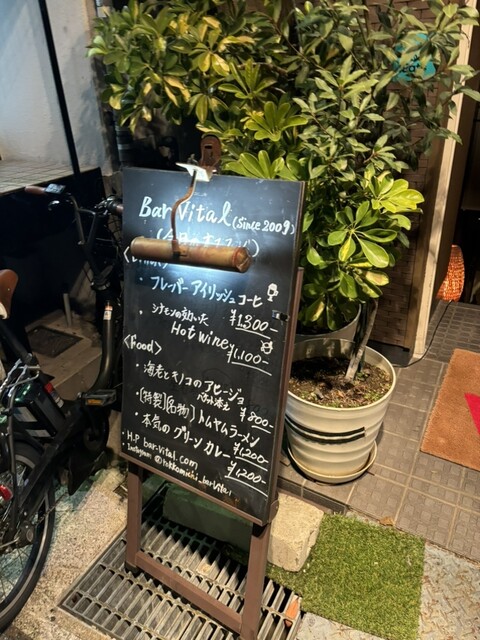 Bar Vital (Since 2009)
(今日のオススメ)
・フレーバーアイリッシュコーヒー
¥1,300-
・シナモンの効いた
Hot wine
¥1,100-
<Food>
・海老とキノコのアヒージョ
バケット添え ¥800-
・(特製)(名物)トムヤムラーメン
¥1,200-
・本気のグリーンカレー
¥1,200-
・H.P bar-vital.com
・Instagram @tokkomichi_barvital